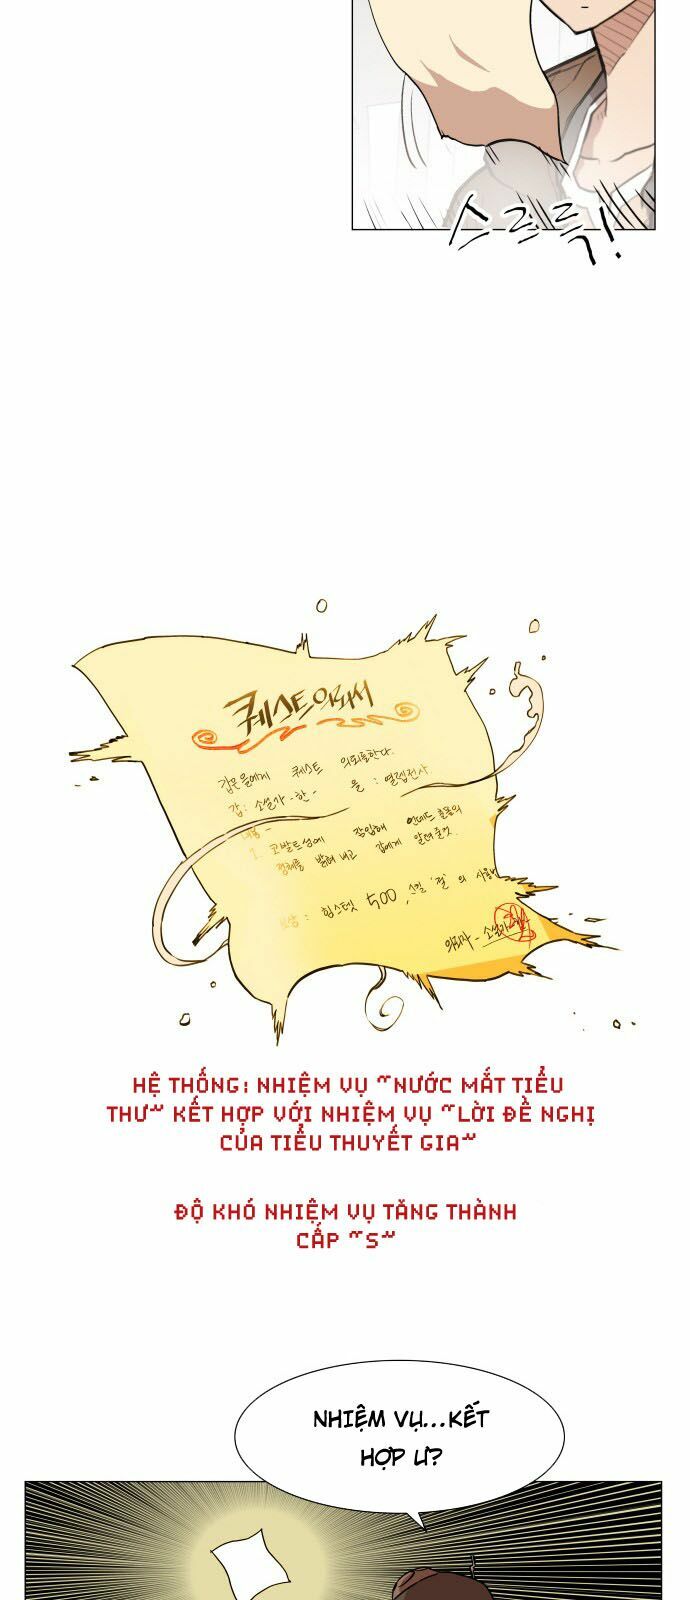 스르륵!
퀘스트의뢰서
갑은 을에게 퀘스트 의뢰를한다.
갑: 소설가-한- 을: 열렙전사
내용-
1. 코발트성에 잠입해 언데드 출몰의
정체를 밝혀내고 갑에게 알려줄것.
보상: 힘스텟 500, 스킬 '절'의 사용
의뢰자-소설가-한
HỆ THỐNG: NHIỆM VỤ "NƯỚC MẮT TIỂU
THƯ" KẾT HỢP VỚI NHIỆM VỤ "LỜI ĐỀ NGHỊ
CỦA TIỂU THUYẾT GIA"
ĐỘ KHÓ NHIỆM VỤ TĂNG THÀNH
CẤP "S"
NHIỆM VỤ...KẾT
HỢP Ư?